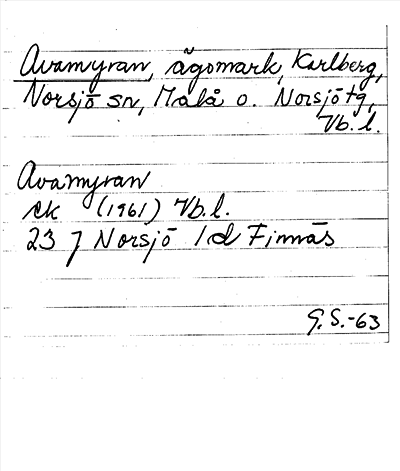 Avamyran, ägomark, Karlberg,
Norsjö sn, Malå o. Norsjö tg,
Vb. l.
Avamyran
ek (1961) Vb. l.
23 J Norsjö 1d Finnäs
G. S. -63